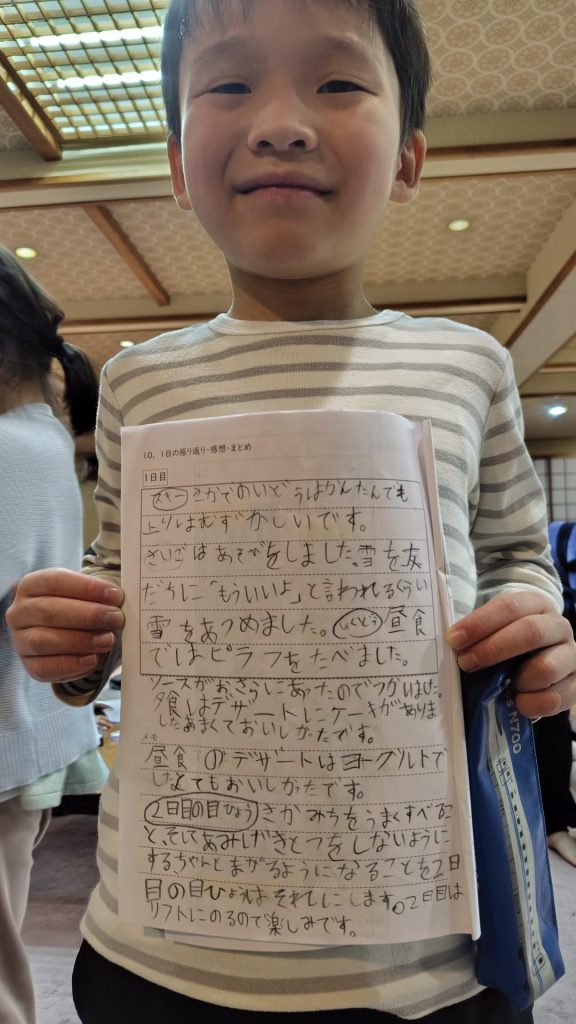 10. 1日の振り返り・感想・まとめ
1日目
スキー さかでのいどうはかんたんでも
上りはむずかしいです。
さいごはあそびをしました。雪を友
だちに「もういいよ」と言われるくらい
雪をあつめました。しょくどう 昼食
ではピラフをたべました。
ソースがおさらにあったのでつかいました。
夕食はデザートにケーキがありま
したあまくておいしかったです。
メモ
昼食のデザートはヨーグルトで
したとてもおいしかったです。
2日目の目ひょう さかみちをうまくすべるこ
と、そしてあみしげきとつをしないように
するちゃんとまがるようになることを2日
目の目ひょうはそれにします。2日目は
リフトにのるので楽しみです。
N700